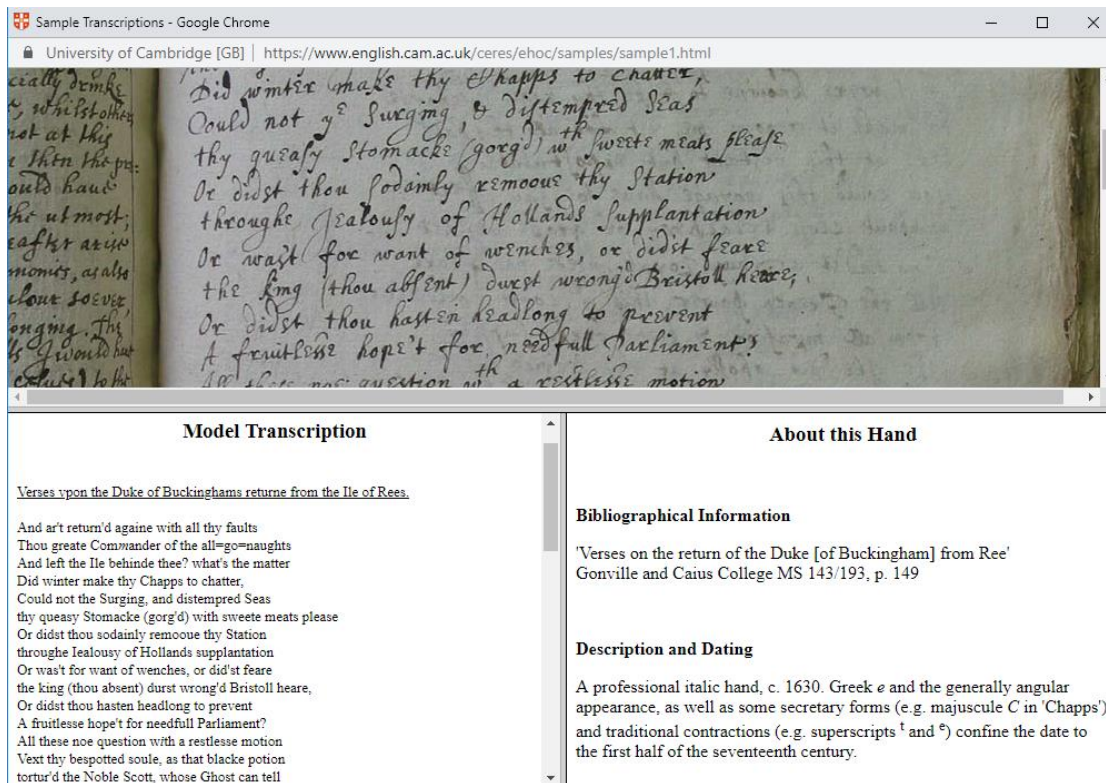 Sample Transcriptions - Google Chrome
University of Cambridge [GB] | https://www.english.cam.ac.uk/ceres/ehoc/samples/sample1.html
cially drinke
, whilst other
not at this
then the pre-
ould haue
the utmost;
eafter arise
monies, as also
lour soever,
onging. Thy
I would but
to the
Did winter make thy Chapps to chatter,
Could not yᵉ Surging, & distempred Seas
thy queasy Stomacke (gorg'd) wᵗʰ sweete meats please
Or didst thou sodainly remooue thy Station
throughe Jealousy of Hollands supplantation
Or wast for want of wenches, or didst feare
the king (thou absent) durst wrong'd Bristoll heare,
Or didst thou hasten headlong to prevent
A fruitlesse hope't for needfull Parliament?
All these noe question wᵗʰ a restlesse motion
Model Transcription
Verses vpon the Duke of Buckinghams returne from the Ile of Rees.
And ar't return'd againe with all thy faults
Thou greate Commander of the all=go=naughts
And left the Ile behinde thee? what's the matter
Did winter make thy Chapps to chatter,
Could not the Surging, and distempred Seas
thy queasy Stomacke (gorg'd) with sweete meats please
Or didst thou sodainly remooue thy Station
throughe Iealousy of Hollands supplantation
Or was't for want of wenches, or did'st feare
the king (thou absent) durst wrong'd Bristoll heare,
Or didst thou hasten headlong to prevent
A fruitlesse hope't for needfull Parliament?
All these noe question with a restlesse motion
Vext thy bespotted soule, as that blacke potion
tortur'd the Noble Scott, whose Ghost can tell
About this Hand
Bibliographical Information
'Verses on the return of the Duke [of Buckingham] from Ree'
Gonville and Caius College MS 143/193, p. 149
Description and Dating
A professional italic hand, c. 1630. Greek e and the generally angular
appearance, as well as some secretary forms (e.g. majuscule C in 'Chapps')
and traditional contractions (e.g. superscripts ᵗ and ᵉ) confine the date to
the first half of the seventeenth century.